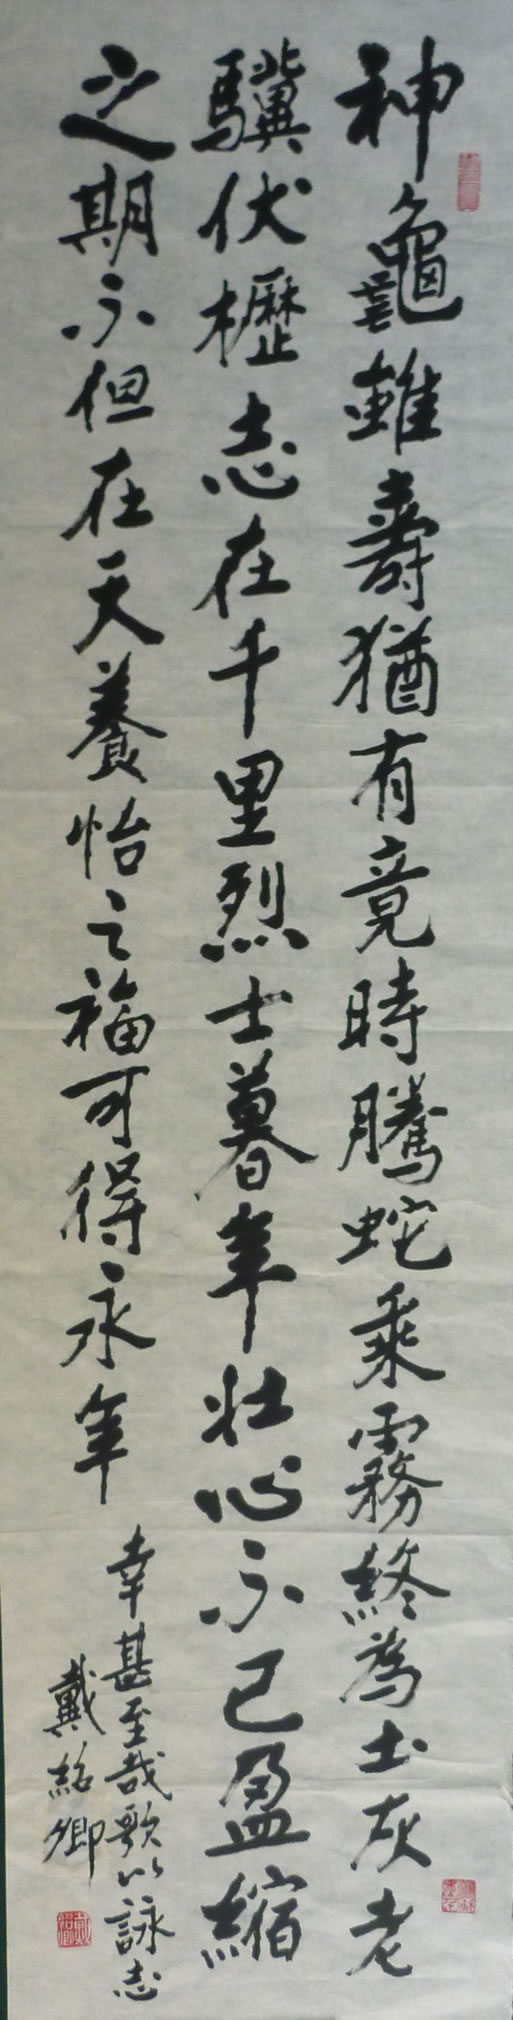 神龜雖壽猶有竟時騰蛇乘霧終為土灰老
驥伏櫪志在千里烈士暮年壯心不已盈縮
之期不但在天養怡之福可得永年
幸甚至哉歌以詠志
戴紹卿